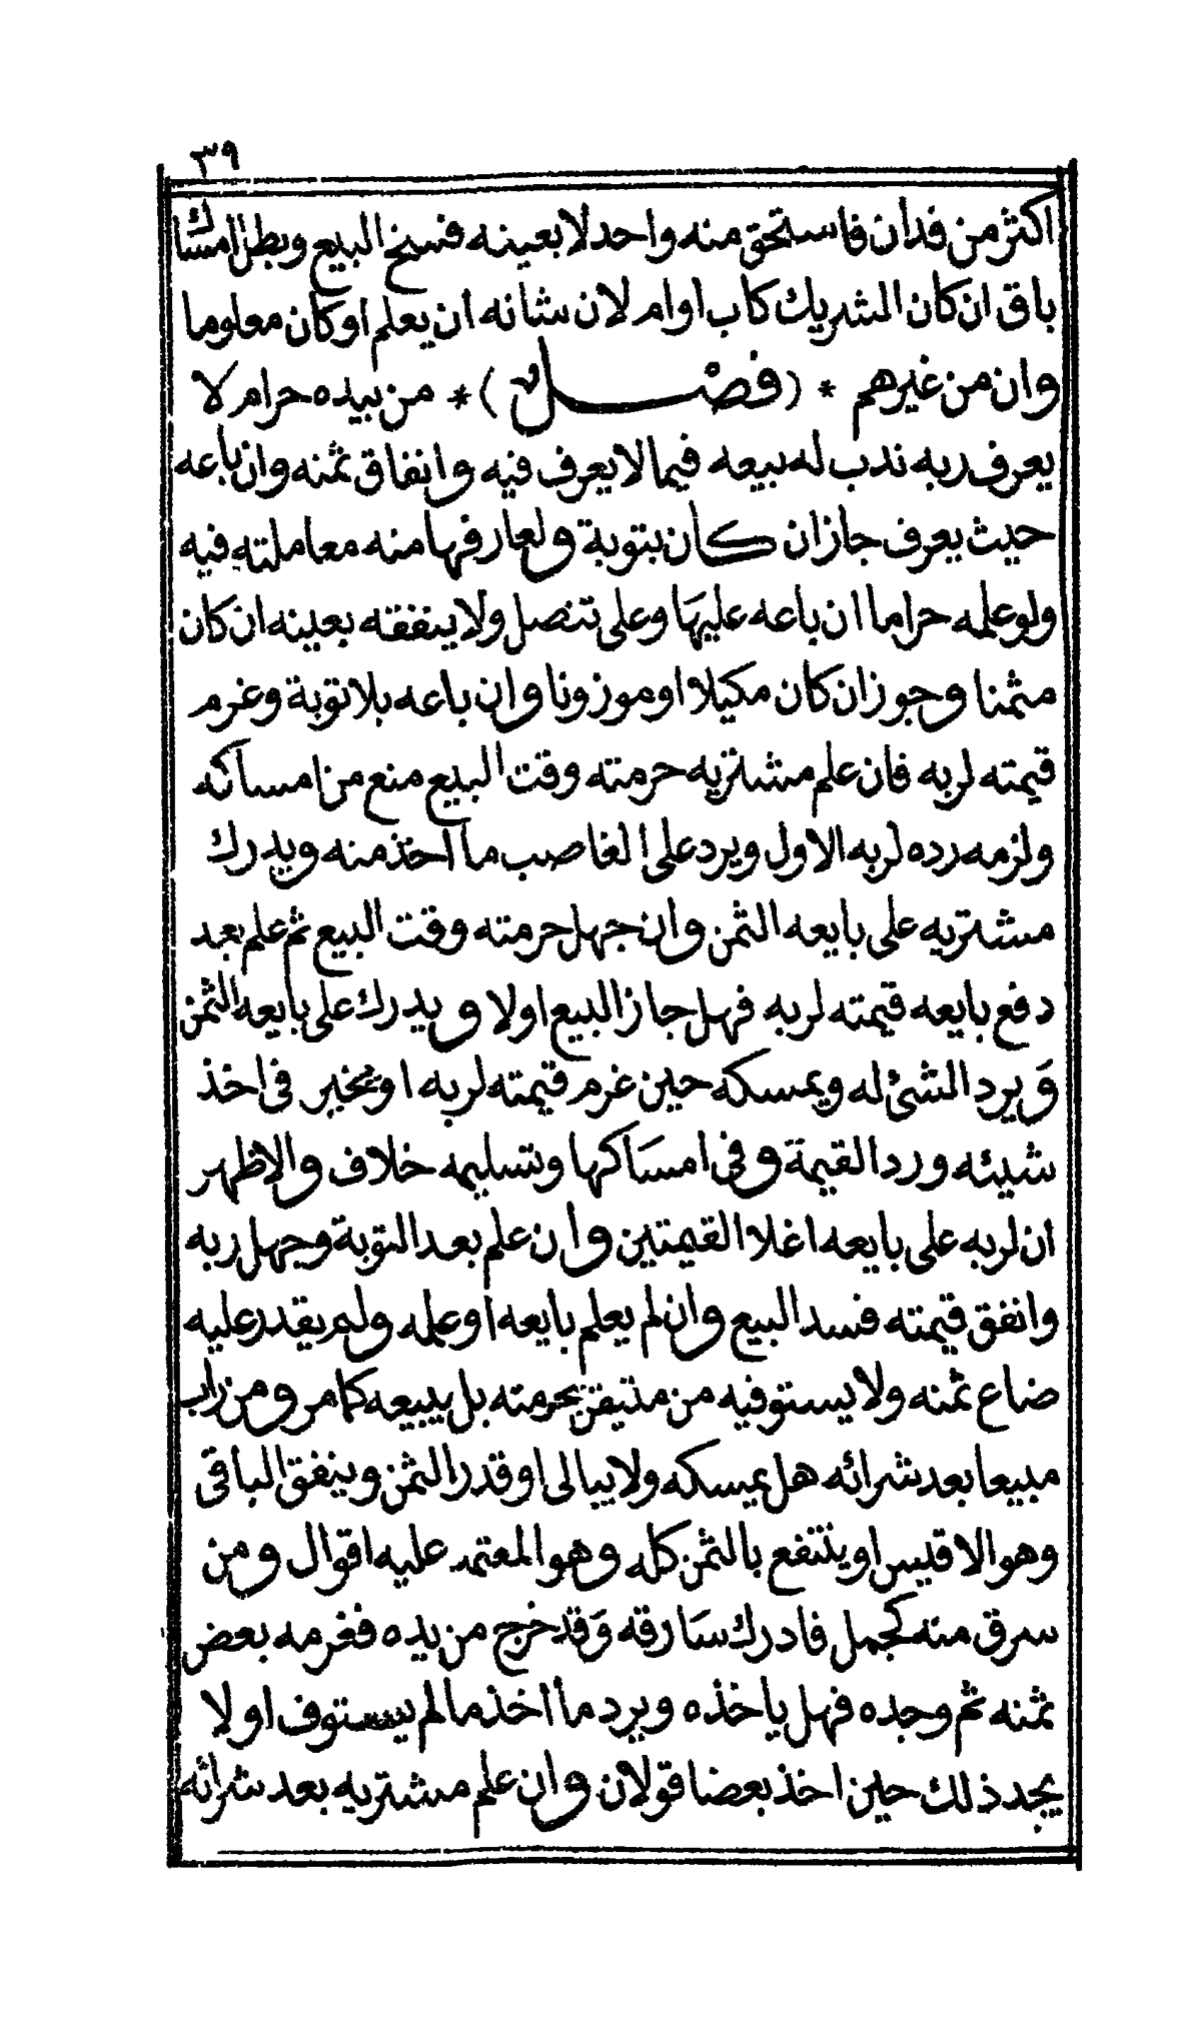 ٣٩
اكثر من فدان فاستحق منه واحد لا بعينه فسخ البيع وبطل امساك
باق ان كان الشريك كاب اوام لان شانه ان يعلم او كان معلوما
وان من غيرهم * (فصل) * من بيده حرام لا
يعرف ربه ندب له بيعه فيما لا يعرف فيه وانفاق ثمنه وان باعه
حيث يعرف جاز ان كان بتوبة ولعارفها منه معاملته فيه
ولو علمه حراما ان باعه عليها وعلى تنصل ولا ينفقه بعينه ان كان
مثمنا وجوز ان كان مكيلا او موزونا وان باعه بلا توبة وغرم
قيمته لربه فان علم مشتريه حرمته وقت البيع منع من امساكه
ولزمه رده لربه الاول ويرد على الغاصب ما اخذ منه ويدرك
مشتريه على بايعه الثمن وان جهل حرمته وقت البيع ثم علم بعد
دفع بايعه قيمته لربه فهل جاز البيع اولا ويدرك على بايعه الثمن
ويرد الشئ له ويمسكه حين غرم قيمته لربه او يخير في اخذ
شيئه ورد القيمة وفي امساكها وتسليمه خلاف والاظهر
ان لربه على بايعه اغلا القيمتين وان علم بعد التوبة وجهل ربه
وانفق قيمته فسد البيع وان لم يعلم بايعه او علمه ولم يقدر عليه
ضاع ثمنه ولا يستوفيه من متيقن بحرمته بل يبيعه كما مر ومن راب
مبيعا بعد شرائه هل يمسكه ولا يبالى او قدر الثمن وينفق الباقى
وهو الاقيس او ينتفع بالثمن كله وهو المعتمد عليه اقوال ومن
سرق منه كجمل فادرك سارقه وقد خرج من يده فغرمه بعض
ثمنه ثم وجده فهل ياخذه ويرد ما اخذ مالم يستوف اولا
يجد ذلك حين اخذ بعضا قولان وان علم مشتريه بعد شرائه